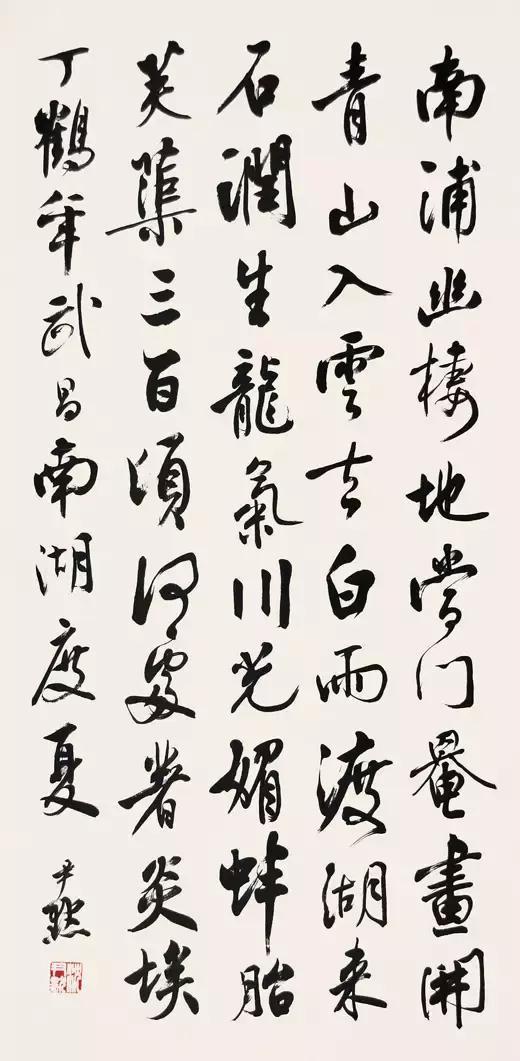 南浦幽棲地當門罨畫開
青山入雲去白雨渡湖来
石潤生龍氣川光媚蚌胎
芙蕖三百頃何處著炎埃
丁鶴年武昌南湖度夏
尹默